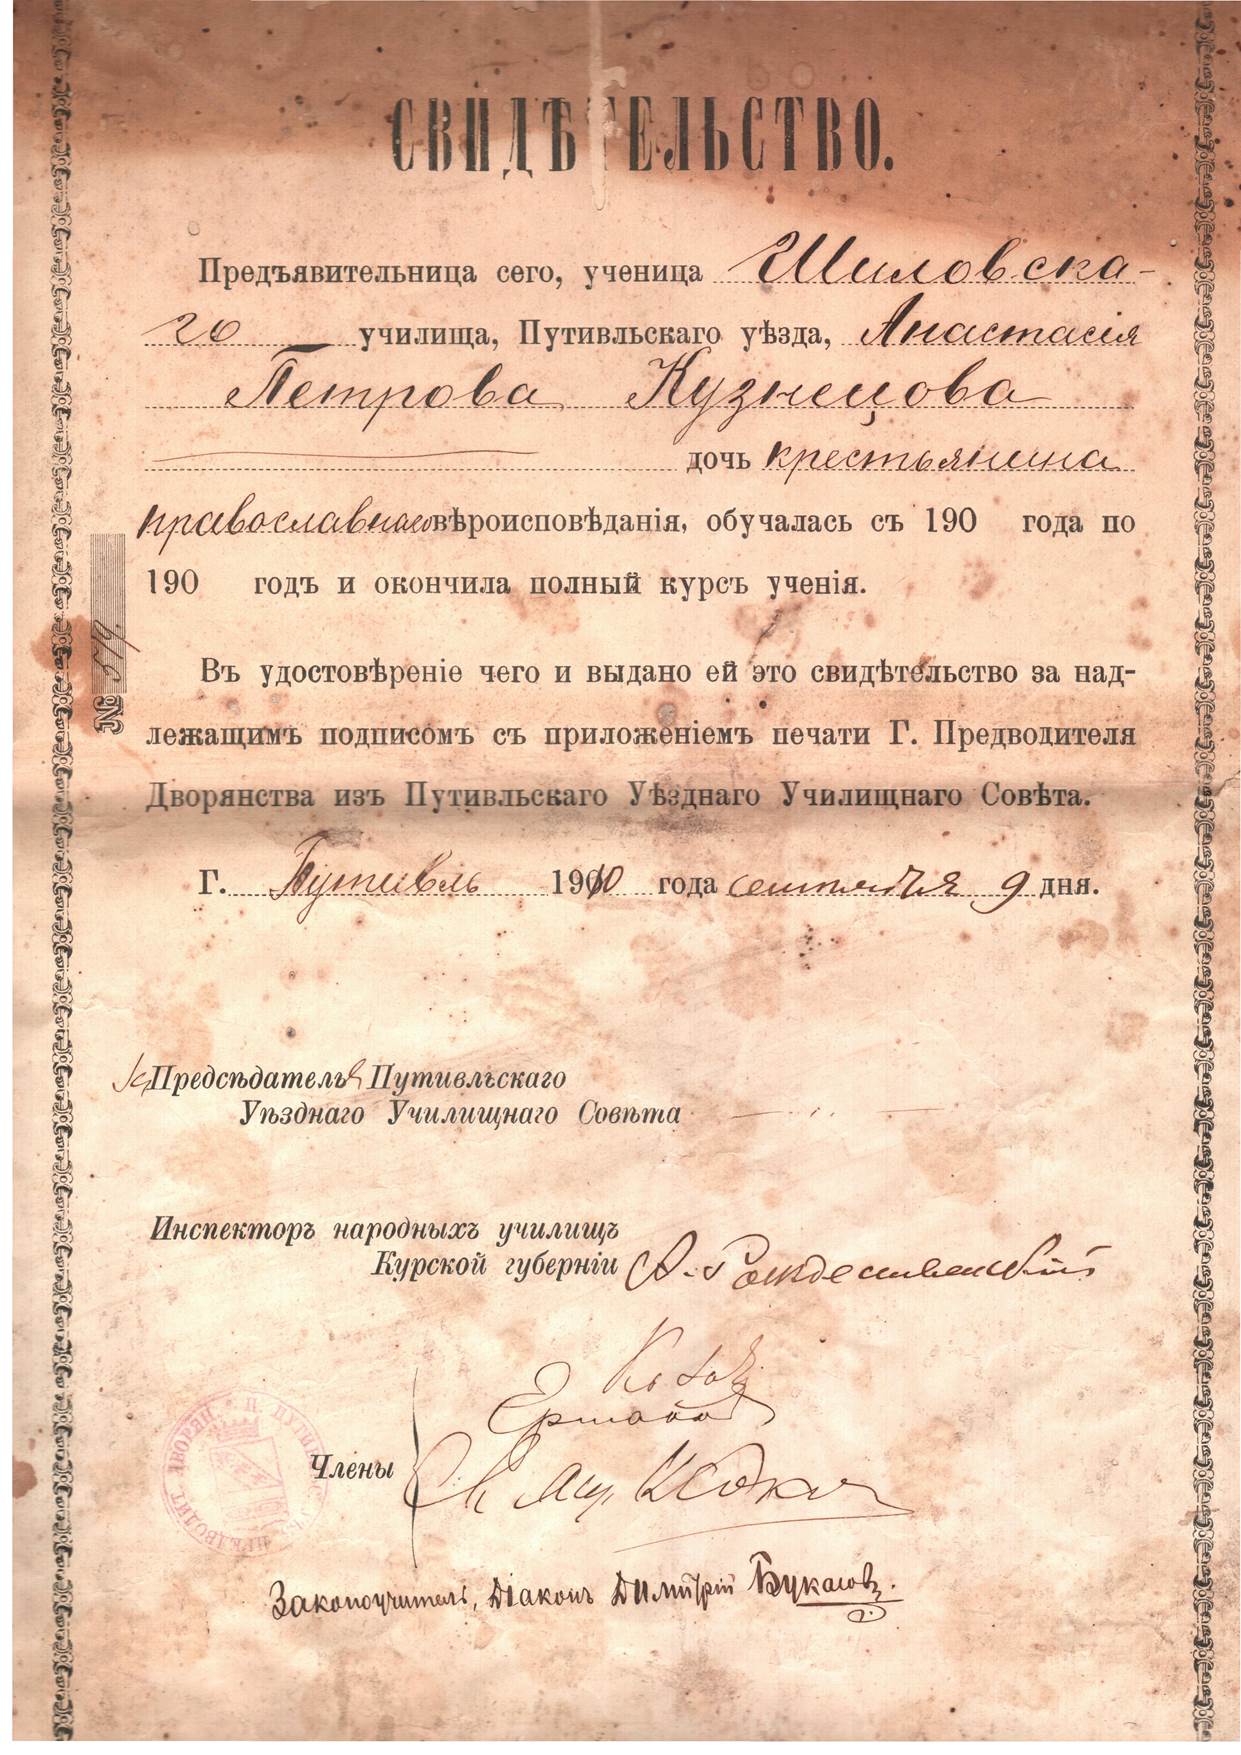 СВИДѢТЕЛЬСТВО.
Предъявительница сего, ученица Шиловска-
го училища, Путивльскаго уѣзда, Анастасія
Петрова Кузнецова
дочь крестьянина
православнаго вѣроисповѣданія, обучалась съ 190 года по
190 годъ и окончила полный курсъ ученія.
№ 519.
Въ удостовѣреніе чего и выдано ей это свидѣтельство за над-
лежащимъ подписомъ съ приложеніемъ печати Г. Предводителя
Дворянства изъ Путивльскаго Уѣзднаго Училищнаго Совѣта.
Г. Путивль 1910 года сентября 9 дня.
Предсѣдателя Путивльскаго
Уѣзднаго Училищнаго Совѣта
Инспекторъ народныхъ училищъ
Курской губерніи А. Рождественскій
Члены
Законоучитель, Діаконъ Димитрій Букасовъ.